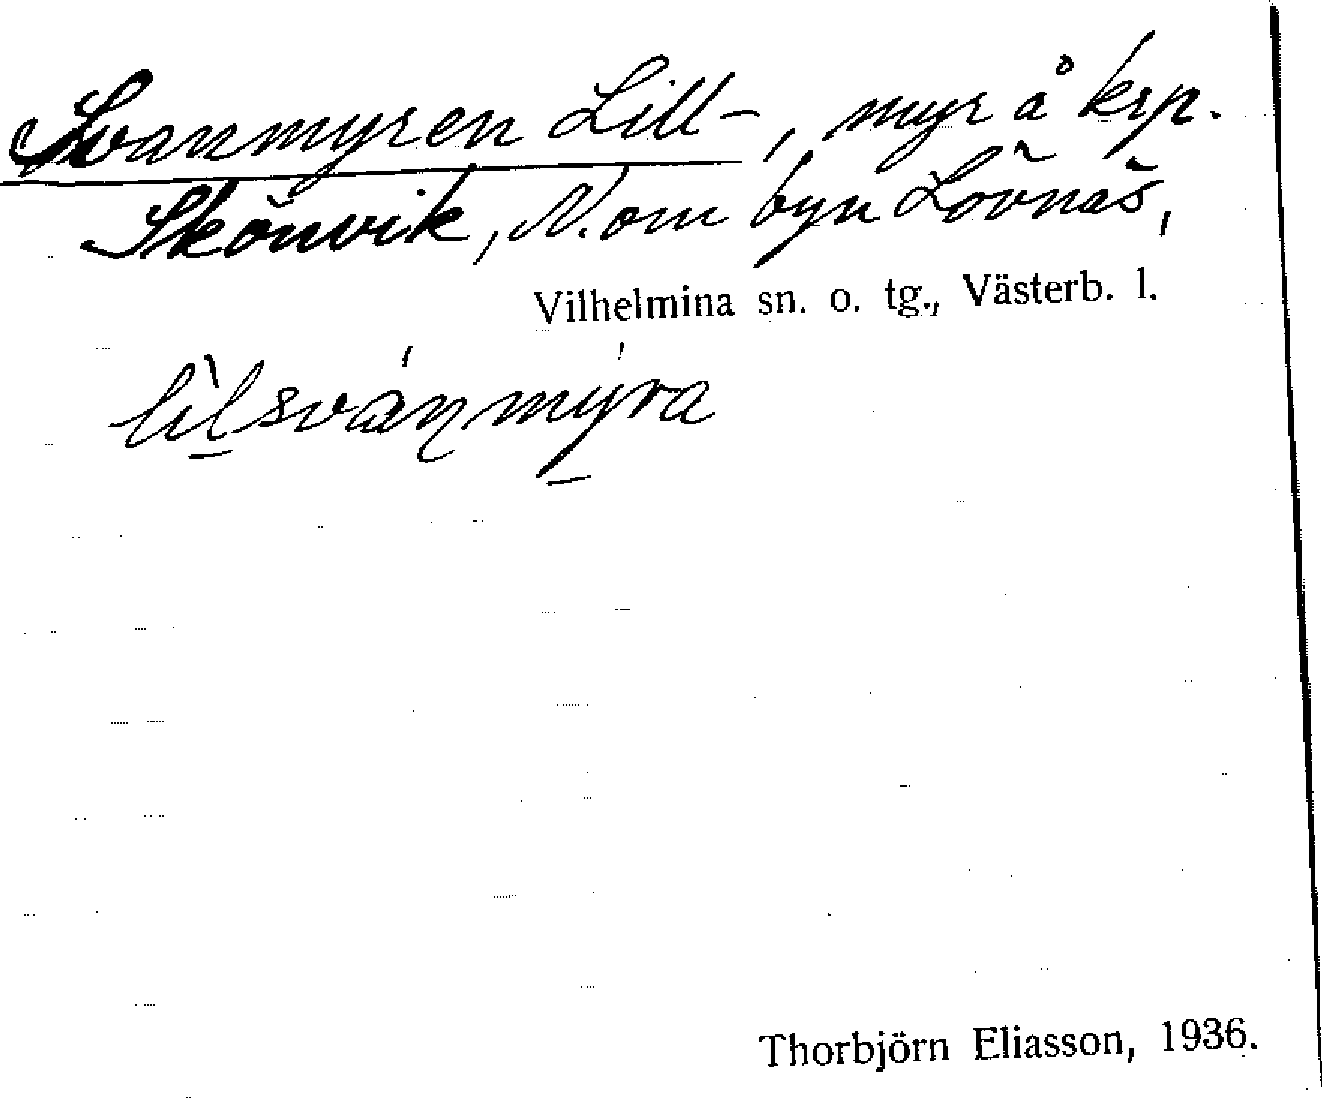 Svanmyren Lill-, myr å krp.
Skönvik, N. om byn Lövnäs,
Vilhelmina sn. o. tg., Västerb. l.
lìlsvánmýra
Thorbjörn Eliasson, 1936.